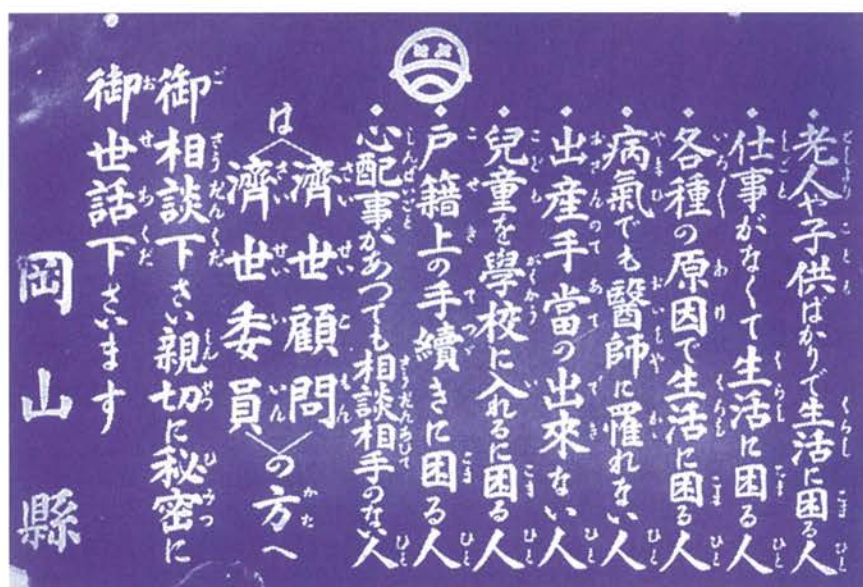 老人や子供ばかりで生活に困る人
仕事がなくて生活に困る人
各種の原因で生活に困る人
病氣でも醫師に罹れない人
出産手當の出來ない人
兒童を學校に入れるに困る人
戸籍上の手續きに困る人
心配事があつても相談相手のない人
は
濟世顧問
濟世委員
の方へ
御相談下さい親切に秘密に
御世話下さいます
岡山縣